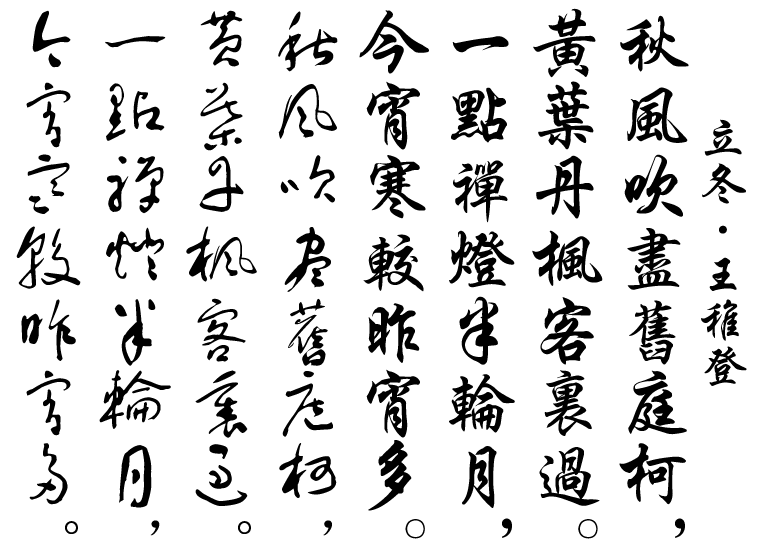 立冬·王稚登
秋風吹盡舊庭柯，
黃葉丹楓客裏過。
一點禪燈半輪月，
今宵寒較昨宵多。
秋風吹盡舊庭柯，
黃葉丹楓客裏過。
一點禪燈半輪月，
今宵寒較昨宵多。